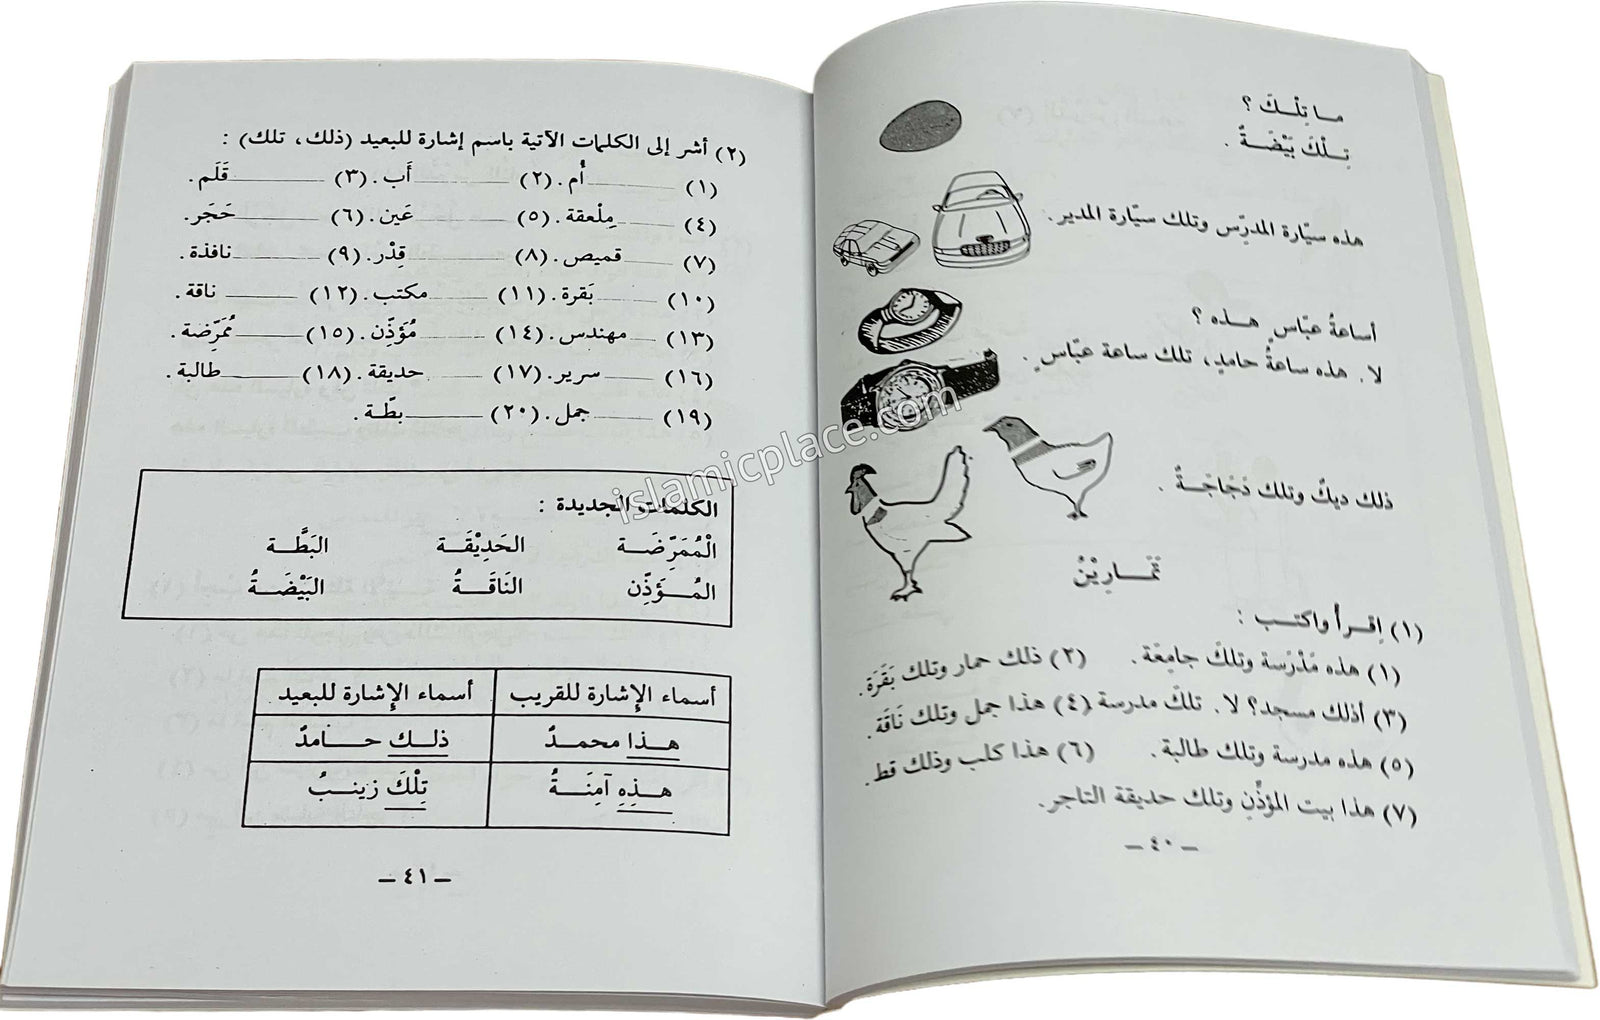 ما تِلْـكَ ؟
تِـلْكَ بَيْضَـةٌ .
هذه سيّارة المدرِّس وتلك سيّارة المدير .
أساعةُ عبّاسٍ هـذه ؟
لا . هذه ساعةُ حامدٍ، تلك ساعة عبّاسٍ .
ذلك ديكٌ وتلك دَجَاجَـةٌ .
تَمَـارِيْنُ
(١) اِقـرأ واكتـب :
(١) هذه مَدْرَسة وتلكَ جامِعَة . (٢) ذلك حمار وتلك بَقَرَة .
(٣) أذلك مسجد؟ لا . تلكَ مدرسة (٤) هذا جمل وتلك نَاقَة .
(٥) هذه مدرسة وتلك طالبة . (٦) هذا كلب وذلك قط .
(٧) هذا بيت المؤذِّنِ وتلك حديقة التاجر .
– ٤٠ –
(٢) أشر إلى الكلمات الآتية باسم إشارة للبعيد (ذلك، تلك) :
(١) ــــــــ أُم . (٢) ــــــــ أَب . (٣) ــــــــ قَلَم .
(٤) ــــــــ مِلْعقة . (٥) ــــــــ عَين . (٦) ــــــــ حَجَر .
(٧) ــــــــ قميص . (٨) ــــــــ قِدْر . (٩) ــــــــ نافذة .
(١٠) ــــــــ بَقرة . (١١) ــــــــ مكتب . (١٢) ــــــــ ناقة .
(١٣) ــــــــ مهندس . (١٤) ــــــــ مُؤَذّن . (١٥) ــــــــ مُمَرِّضة .
(١٦) ــــــــ سرير . (١٧) ــــــــ حديقة . (١٨) ــــــــ طالبة .
(١٩) ــــــــ جمل . (٢٠) ــــــــ بطّة .
الكلمات الجديدة :
الْمُمَرِّضَـة الحَدِيْقَـة البَطَّـة
المُـؤَذّن النَاقَـةُ البَيْضَـةُ
أسماء الإِشارة للقريب أسماء الإِشارة للبعيد
هـذا محمدٌ ذلـك حـامدٌ
هـذِهِ آمِنَـةُ تِلْكَ زينبُ
– ٤١ –
islamicplace.com